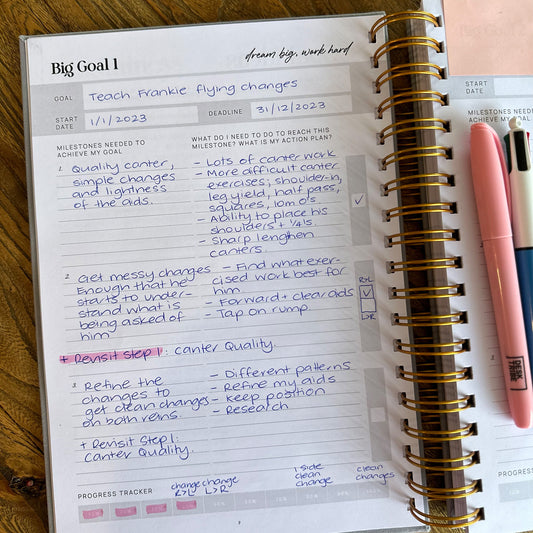 Big Goal 1
dream big, work hard
GOAL Teach Frankie flying changes
START DATE 1/1/2023 DEADLINE 31/12/2023
MILESTONES NEEDED TO ACHIEVE MY GOAL
WHAT DO I NEED TO DO TO REACH THIS MILESTONE? WHAT IS MY ACTION PLAN?
1. Quality canter,
simple changes
and lightness
of the aids.
- Lots of canter work
- More difficult canter
exercises; shoulder-in,
leg yield, half pass,
squares, 10m o's.
- Ability to place his
shoulders + 1/4's.
- Sharp lengthen
canters.
✓
2. Get messy changes
Enough that he
starts to under-
stand what is
being asked of
him
- Find what exer-
cised work best for
him.
- Forward + clear aids
- Tap on rump
R>L
✓
L>R
+ Revisit step 1: canter Quality.
3. Refine the
changes to
get clean changes
on both reins.
- Different patterns
- Refine my aids
- Keep position
- Research
+ Revisit Step 1:
Canter Quality.
PROGRESS TRACKER
change R>L
change L>R
1 side clean change
clean changes
Big Goal 2
START DATE
MILESTONES NEEDED TO ACHIEVE MY GOAL
PROGRESS